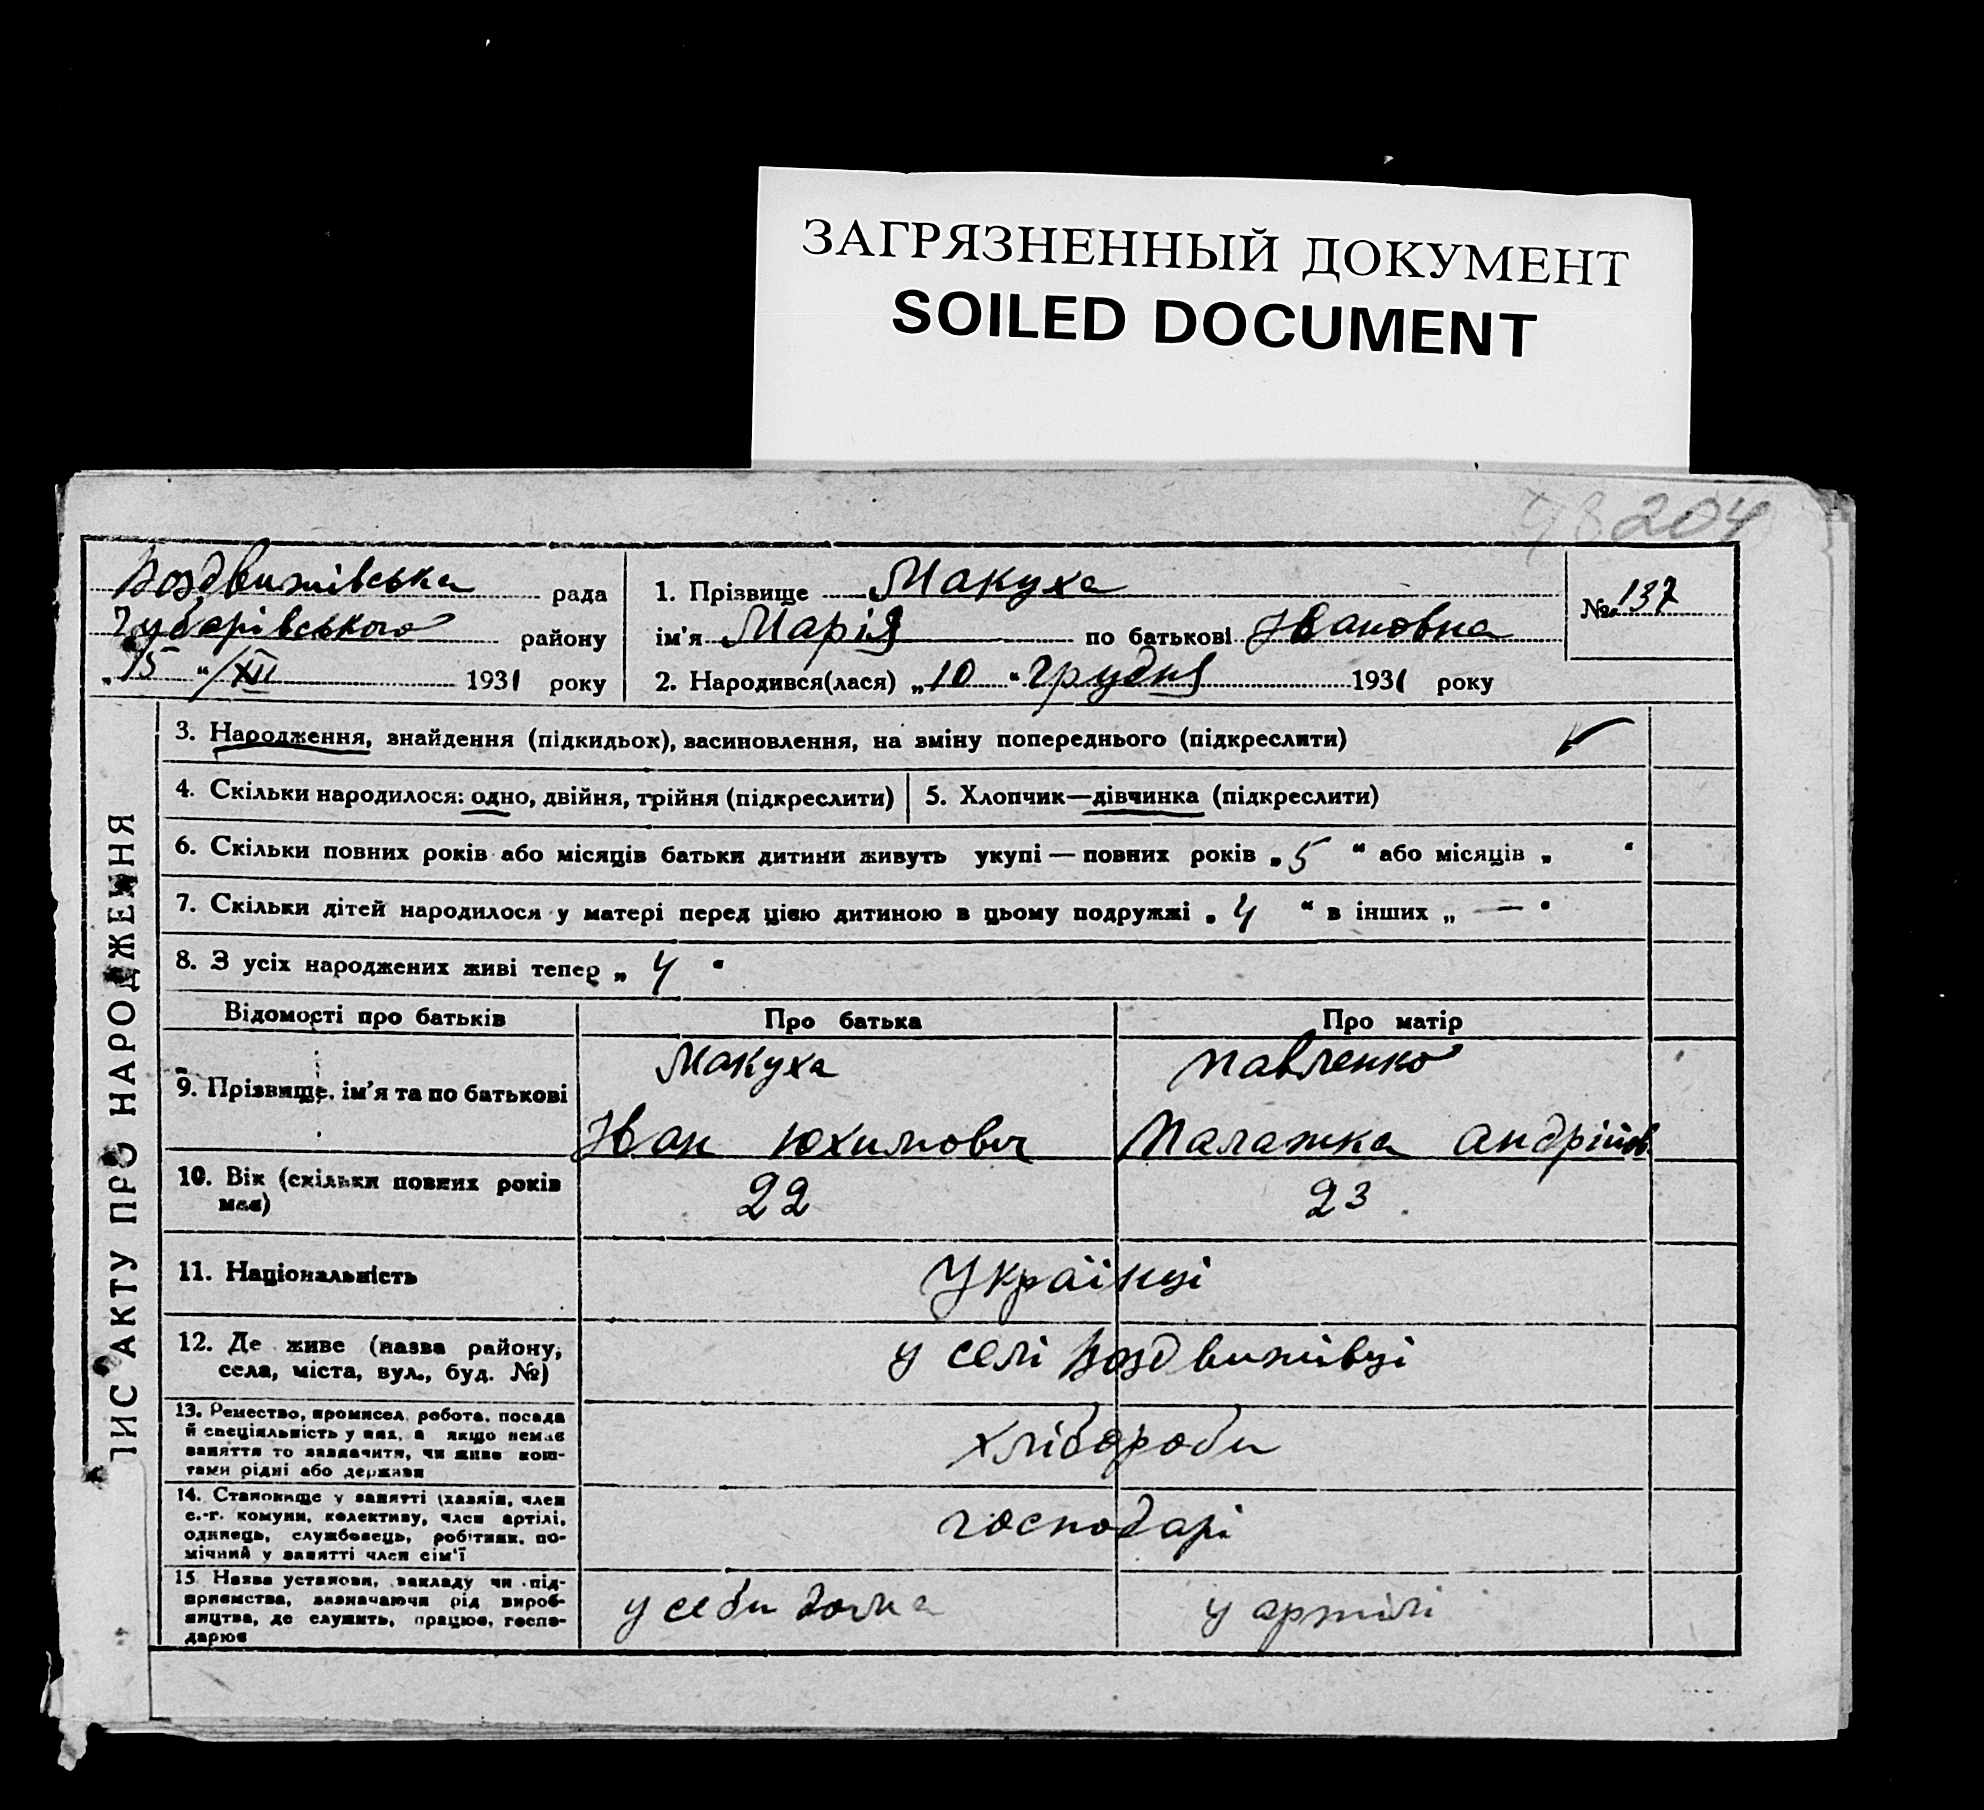 ЗАГРЯЗНЕННЫЙ ДОКУМЕНТ
SOILED DOCUMENT
98 204
Воздвижівська рада
Губарівського району
„15“/XII 1931 року
1. Прізвище Макуха
ім'я Марія по батькові Івановна
2. Народився(лася) „10“ грудня 1931 року
№ 137
ПИС АКТУ ПРО НАРОДЖЕННЯ
3. Народження, знайдення (підкидьок), засиновлення, на зміну попереднього (підкреслити)
4. Скільки народилося: одно, двійня, трійня (підкреслити) 5. Хлопчик—дівчинка (підкреслити)
6. Скільки повних років або місяців батьки дитини живуть укупі — повних років „5“ або місяців „ “
7. Скільки дітей народилося у матері перед цією дитиною в цьому подружжі „4“ в інших „—“
8. З усіх народжених живі тепер „4“
Відомості про батьків Про батька Про матір
9. Прізвище, ім'я та по батькові
Макуха Павленко
Іван Юхимович Палажка Андріїв.
10. Вік (скільки повних років
має)
22 23
11. Національність Українці
12. Де живе (назва району,
села, міста, вул., буд. №)
у селі Воздвижівці
13. Ремество, промисел, робота, посада
й спеціяльність у них, а якщо немає
заняття то зазначити, чи живе кош-
тами рідні або держави
хлібороби
14. Становище у занятті (хазяїн, член
с.-г. комуни, колективу, член артілі,
одинець, службовець, робітник, по-
мічний у занятті член сім'ї
господарі
15. Назва установи, закладу чи під-
приємства, зазначаючи рід вироб-
ництва, де служить, працює, госпо-
дарює
у себи дома у артілі